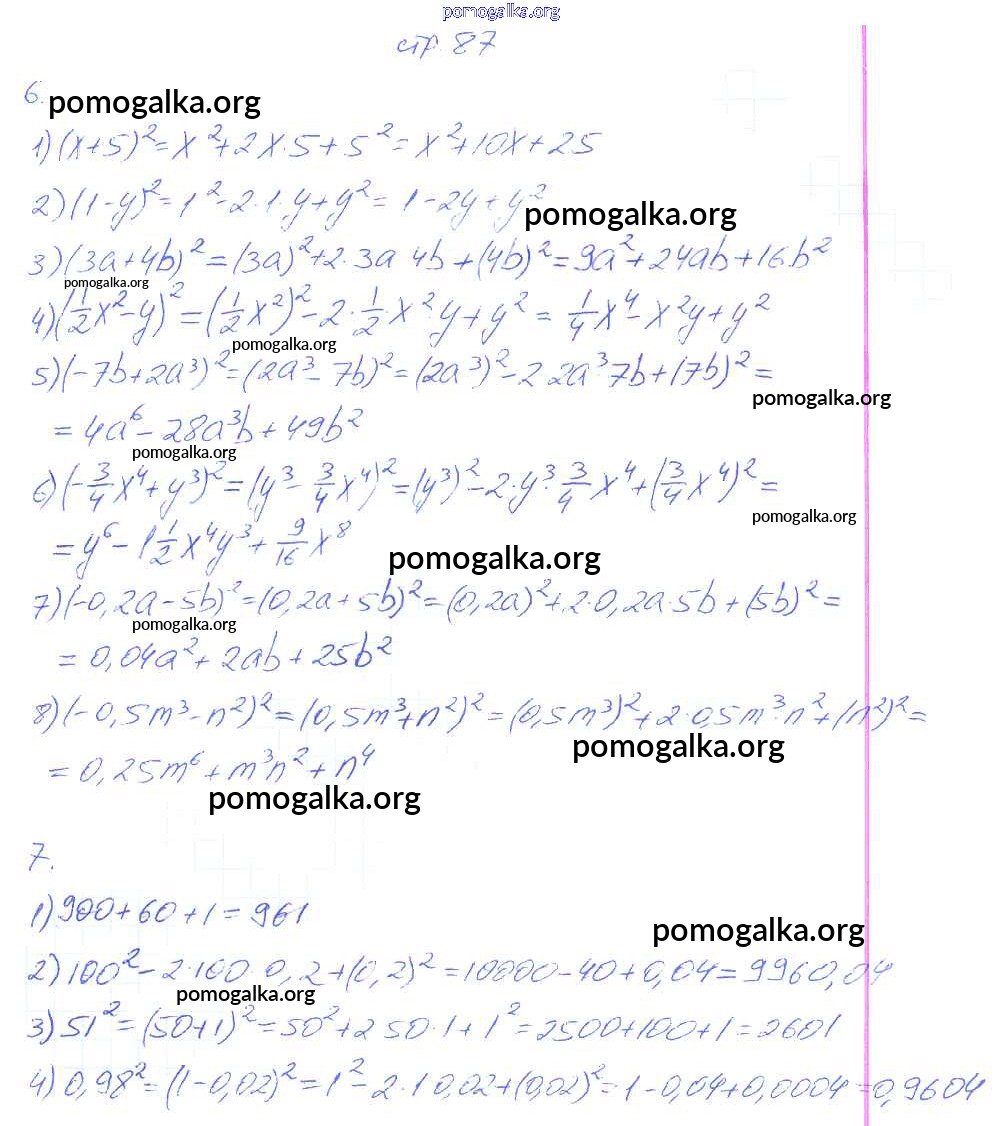 pomogalka.org
стр. 87
6. pomogalka.org
1) (x+5)² = x² + 2x·5 + 5² = x² + 10x + 25
2) (1-y)² = 1² - 2·1·y + y² = 1 - 2y + y²
pomogalka.org
3) (3a+4b)² = (3a)² + 2·3a 4b + (4b)² = 9a² + 24ab + 16b²
pomogalka.org
4) (1/2 x² - y)² = (1/2 x²)² - 2·1/2 x²y + y² = 1/4 x⁴ - x²y + y²
pomogalka.org
5) (-7b+2a³)² = (2a³ - 7b)² = (2a³)² - 2 2a³·7b + (7b)² =
pomogalka.org
= 4a⁶ - 28a³b + 49b²
pomogalka.org
6) (-3/4 x⁴ + y³)² = (y³ - 3/4 x⁴)² = (y³)² - 2·y³·3/4 x⁴ + (3/4 x⁴)² =
pomogalka.org
= y⁶ - 1 1/2 x⁴y³ + 9/16 x⁸
pomogalka.org
7) (-0,2a - 5b)² = (0,2a + 5b)² = (0,2a)² + 2·0,2a·5b + (5b)² =
pomogalka.org
= 0,04a² + 2ab + 25b²
8) (-0,5m³ - n²)² = (0,5m³ + n²)² = (0,5m³)² + 2·0,5m³·n² + (n²)² =
pomogalka.org
= 0,25m⁶ + m³n² + n⁴
pomogalka.org
7.
1) 900 + 60 + 1 = 961
pomogalka.org
2) 100² - 2·100·0,2 + (0,2)² = 10000 - 40 + 0,04 = 9960,04
pomogalka.org
3) 51² = (50+1)² = 50² + 2 50·1 + 1² = 2500 + 100 + 1 = 2601
4) 0,98² = (1 - 0,02)² = 1² - 2·1 0,02 + (0,02)² = 1 - 0,04 + 0,0004 = 0,9604